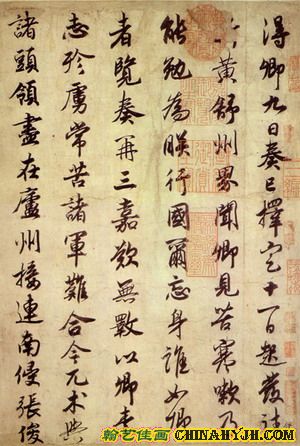 得卿九日奏已擇定十一日起發往
蘄黃舒州界聞卿見苦寒嗽乃
能勉為朕行國爾忘身誰如卿
者覽奏再三嘉歎無斁以卿素
志殄虜常苦諸軍難合今兀朮與
諸頭領盡在廬州接連南侵張俊
翰艺佳画
CHINAHYJH.COM